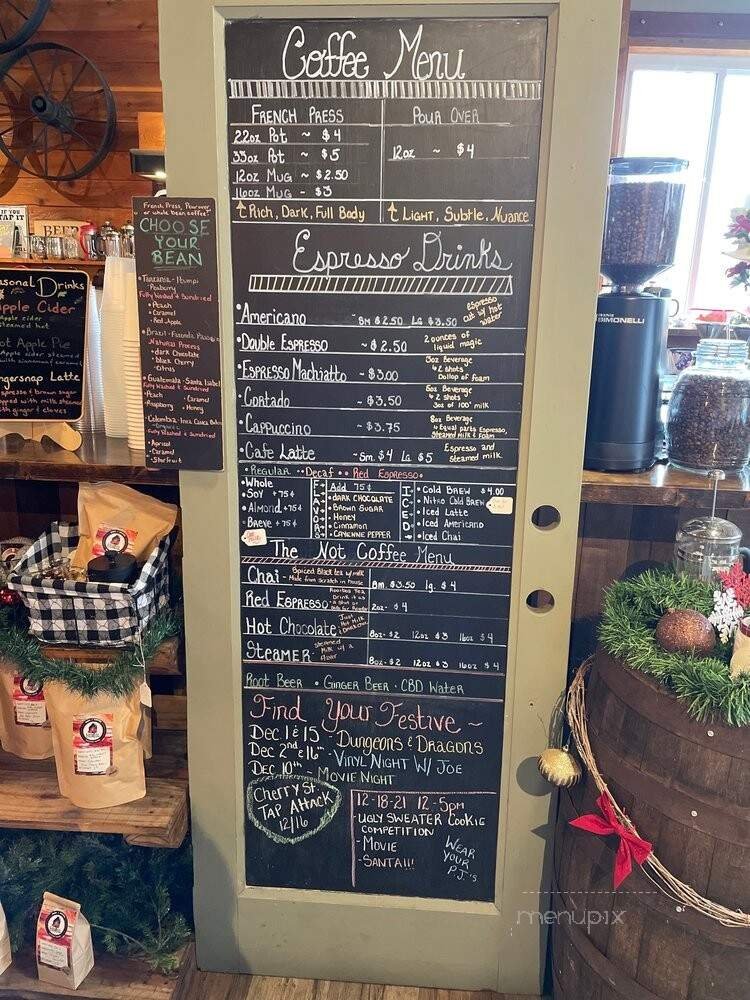 Coffee Menu
FRENCH PRESS
22oz Pot ~ $4
33oz Pot ~ $5
12oz Mug ~ $2.50
16oz Mug - $3
Rich, Dark, Full Body
POUR OVER
12oz ~ $4
LIGHT, Subtle, Nuance
Espresso Drinks
Americano - Sm $2.50 LG $3.50
espresso cut by hot water
Double Espresso ~ $2.50
2 ounces of liquid magic
Espresso Machiatto - $3.00
3oz Beverage
2 shots
Dollop of foam
Cortado - $3.50
6oz Beverage
2 shots
3oz of 100° milk
Cappuccino - $3.75
8oz Beverage
Equal parts Espresso,
Steamed Milk & Foam
Cafe Latte - Sm. $4 LG $5
Espresso and steamed milk
Regular Decaf Red Espresso
Whole
Soy +75¢
Almond +75¢
Breve +75¢
FLAVORS
Add 75¢
DARK CHOCOLATE
BROWN SUGAR
Honey
Cinnamon
CAYENNE PEPPER
ICED
Cold Brew $4.00
Nitro Cold Brew
Iced Latte
Iced Americano
Iced Chai
The Not Coffee Menu
Chai - Spiced Black tea w/ milk
Made from Scratch in House
8m. $3.50 lg. $4
Red Espresso
Rooibos Tea
2oz- $4
Hot Chocolate
8oz- $2 12oz $3 16oz $4
Steamer
Steamed Milk w/ a flavor
8oz- $2 12oz $3 16oz $4
Root Beer • Ginger Beer • CBD Water
Find Your Festive ~
Dec. 1 & 15 - Dungeons & Dragons
Dec 2nd & 16th - Vinyl Night w/ Joe
Dec 10th - Movie Night
Cherry St.
TAP Attack
12/16
12-18-21 12-5pm
-UGLY SWEATER COOKIE
COMPETITION
- MOVIE
-SANTA!!!
WEAR
YOUR
P.J.'s
French Press, Pour over
or whole bean coffee?
CHOOSE
YOUR
BEAN
Fully Washed & Sundried
Peach
Caramel
Red Apple
Natural Process
dark Chocolate
black Cherry
Citrus
Fully Washed & Sundried
Peach
Caramel
Raspberry
Honey
Organic
Fully Washed & Sundried
Apricot
Caramel
Starfruit
asonal Drinks
pple Cider
apple cider
steamed hot
ot Apple Pie
Apple cider steamed
with cinnamon & caramel
ngersnap Latte
espresso & brown sugar
with ginger & cloves
IF YOU
TAP IT
BEER
SIMONELLI
menupix